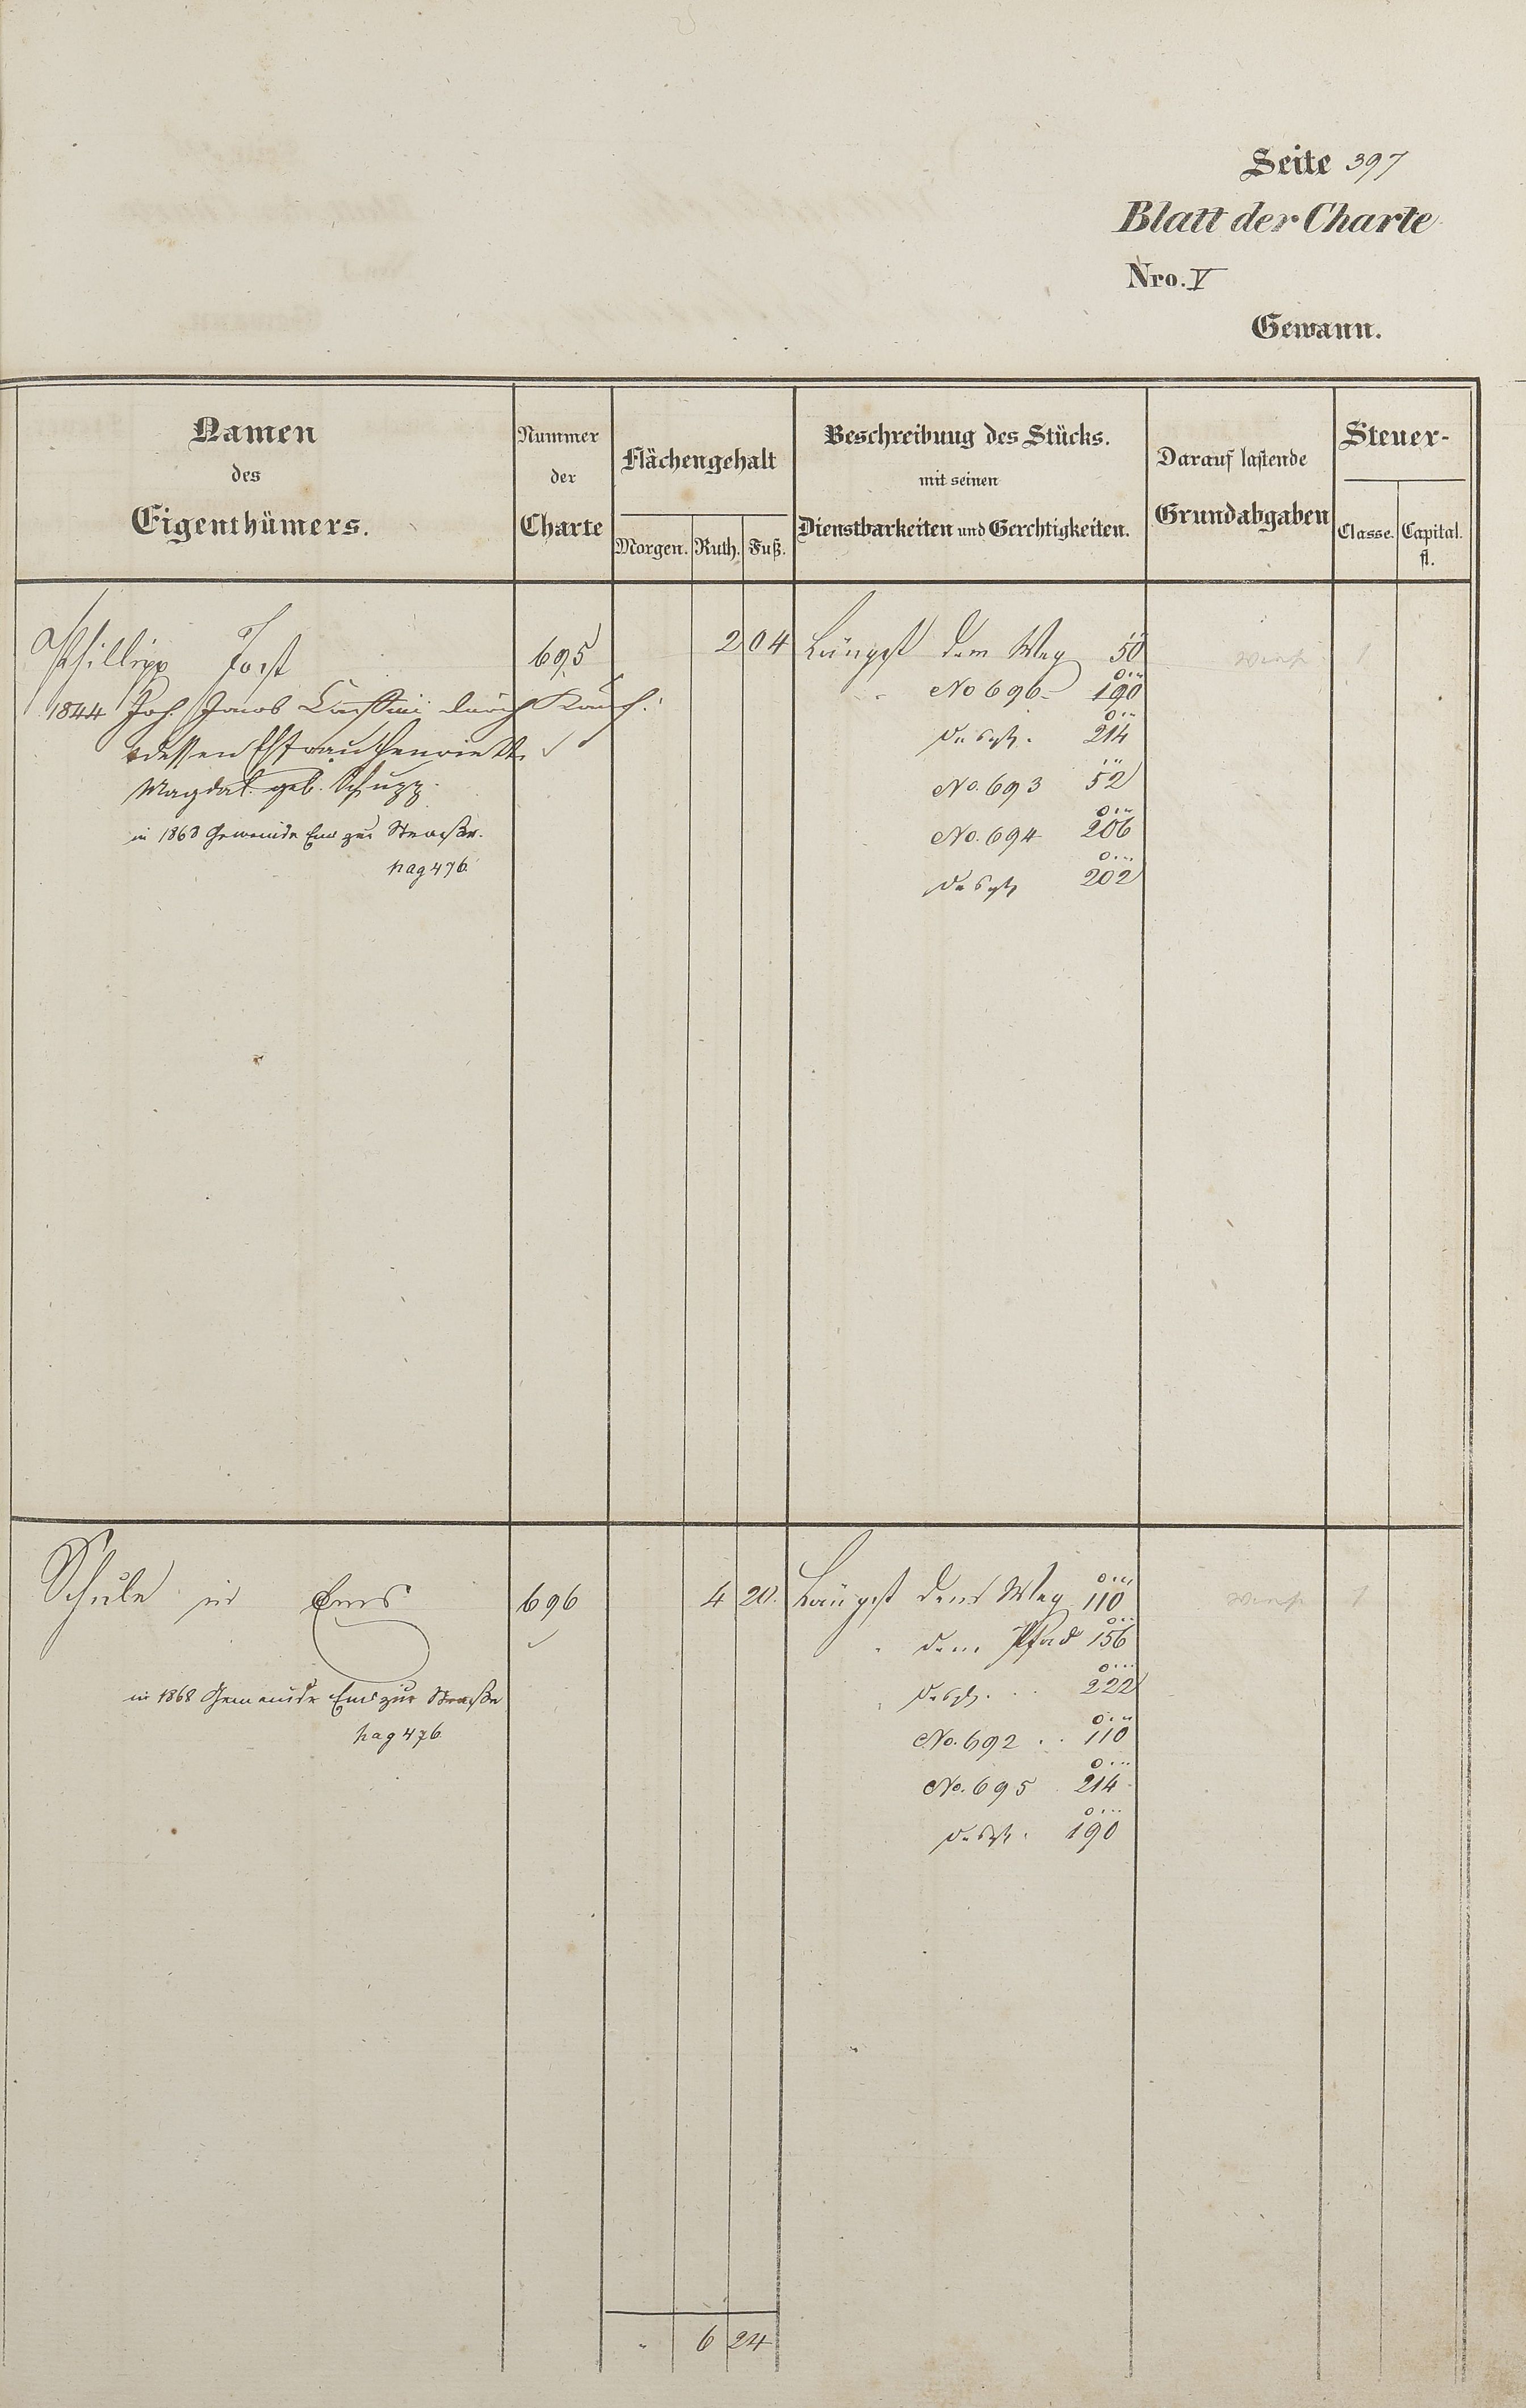 Seite 397
Blatt der Charte
Nro. V
Gewann.
Namen des Eigenthümers.
Nummer der Charte
Flächengehalt
Morgen. Ruth. Fuß.
Beschreibung des Stücks. mit seinen Dienstbarkeiten und Gerechtigkeiten.
Darauf lastende Grundabgaben
Steuer-
Classe. Capital. fl.
Phillipp Jost 695 2 04 Längst dem Weg 50
No 696 190
1844 Joh. Jacob durch Kauf.
desgl. 214
dessen Ehefrau Henriette
Magdal. geb. Schupp No. 693 52
in 1868 Gemeinde Ems zur Straße. No. 694 206
pag 476 desgl 202
Schule in Ems 696 4 20. Längst dem Weg 110
dem Pfad 156
in 1868 Gemeinde Ems zur Straße desgl. 222
pag 476 No. 692 110
No. 695 214
desgl. 190
" 6 24